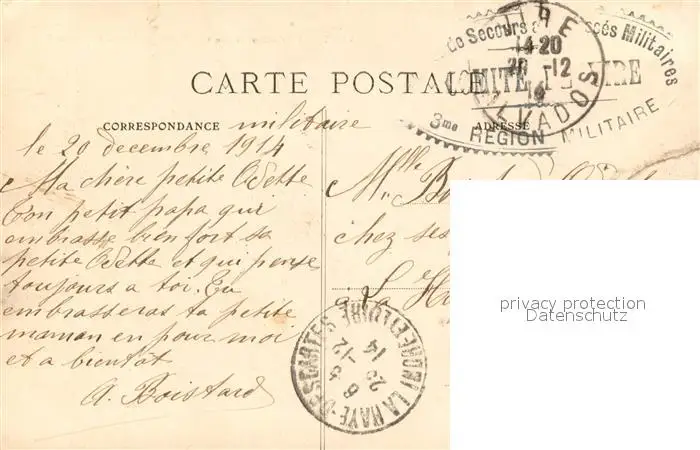 CARTE POSTALE
CORRESPONDANCE militaire
ADRESSE
le 20 decembre 1914
Ma chère petite Odette
Ton petit papa qui
embrasse bien fort sa
petite Odette et qui pense
toujours a toi. Tu
embrasseras ta petite
maman en pour moi
et a bientôt
A. Boistard
Mlle
chez ses
a La
de Secours
Militaires
COMITE DE VIRE
3me REGION MILITAIRE
VIRE
14-20
20-12
14
CALVADOS
LA HAYE-DESCARTES
INDRE-ET-LOIRE
-12
14
privacy protection
Datenschutz